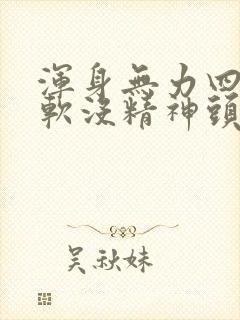 渾身無力四
軟沒精神頭
吴秋妹